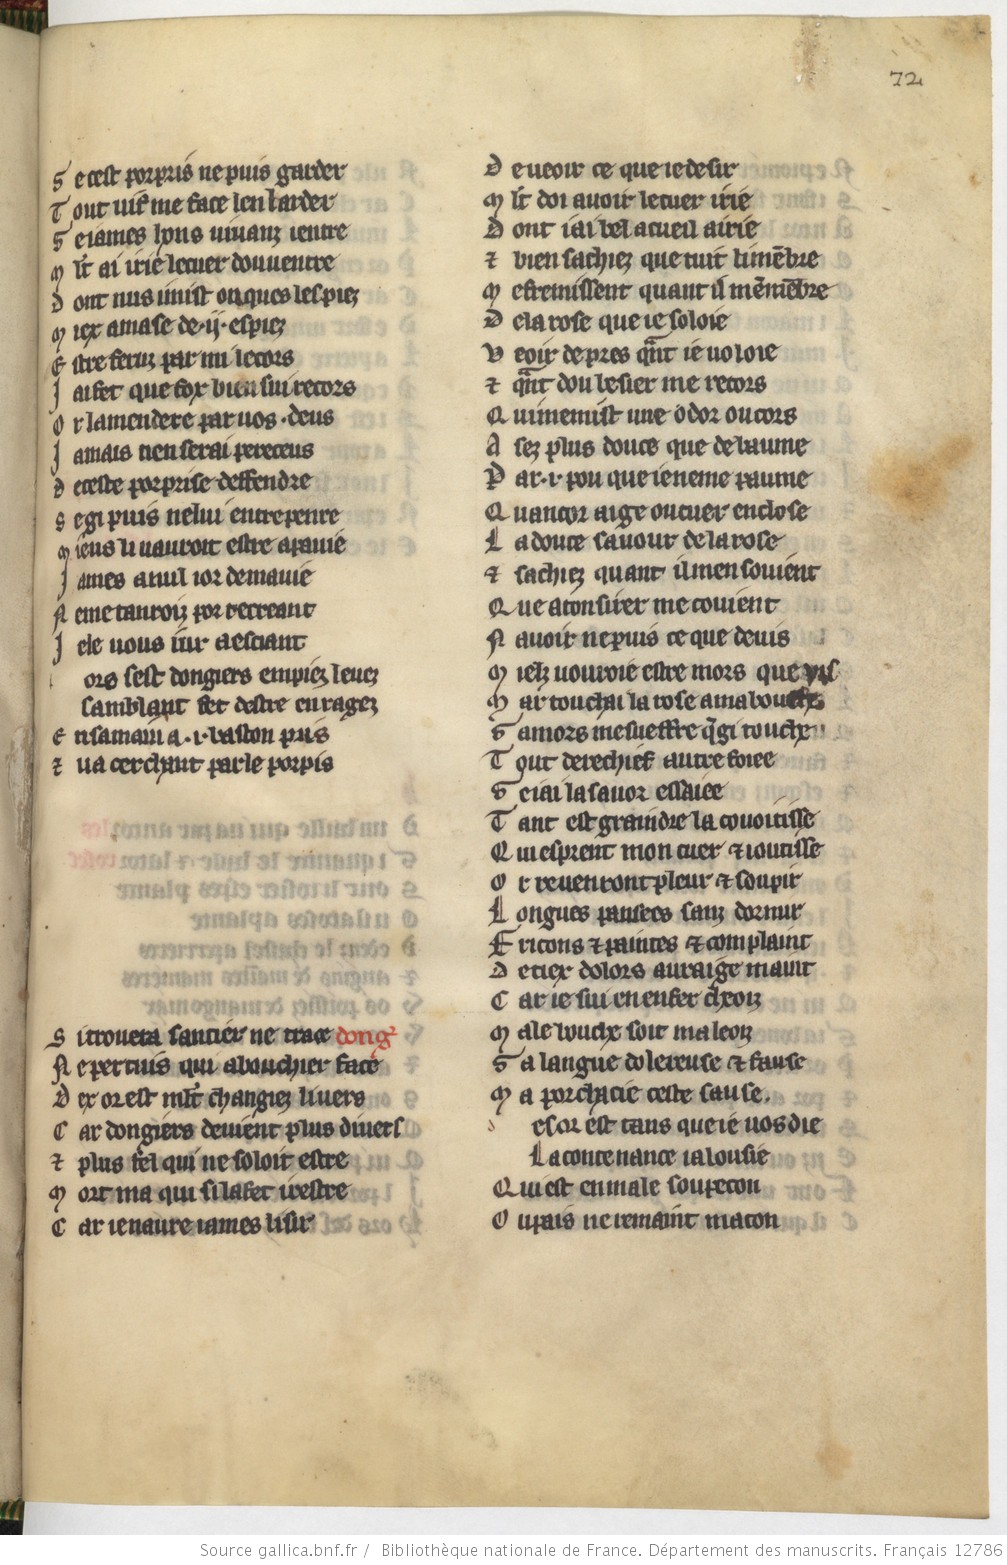 72
S e cest porpris ne puis garder
T out uif me face len larder
S e iames hons uiuanz ientre
M lt ai irie le cuer dou uentre
D ont nus i mist onques les piez
M iex amase de .ij. espiez
E stre feruz par mi le cors
J ai fet que fox bien sui recors
O r lamendere par uos .deus
J amais nen serai pereceus
D e ceste porprise deffendre
S e gi puis nelui entreprenre
M ieus li uauroit estre a pauie
J ames a nul ior de ma uie
N e me tauroiz por recreant
J e le uous iur a esciant
ors sest dongiers em piez leuez
Samblant fet destre enragez
E n sa main a .i. baston pris
⁊ ua cerchant par le porpis
S i trouera santier ne trace dong
N e pertuis qui a bouchier face
D ex or est mlt changiez li uers
C ar dongiers deuient plus diuers
⁊ plus fel qui ne soloit estre
M ort ma qui si la fet irestre
C ar ie naure iames lisir
D e ueoir ce que ie desir
M lt doi auoir le cuer irie
D ont iai bel acueil airie
⁊ bien sachiez que tuit li menbre
M e fremissent quant il me menbre
D e la rose que ie soloie
V eoir de pres qant ie uoloie
⁊ qant dou besier me recors
Q ui me mist une odor ou cors
A sez plus douce que de baume
P ar .i. pou que ie ne me paume
Q uancor ai ge ou cuer enclose
L a douce sauour de la rose
⁊ sachiez quant il men souient
Q ue a consirer me couient
N auoir ne puis ce que deuis
M ielz uouroie estre mors que uis
M ar touchai la rose a ma bouche
S amors me sueffre qgi touche
T out derechief autre foiee
S e iai la sauor essaiee
T ant est graindre la couoitisse
Q ui esprent mon cuer ⁊ ioutisse
O r reuenront pleur ⁊ soupir
L ongues pansees sanz dormir
F ricons ⁊ paintes ⁊ complaint
D e tiex dolors aurai ge maint
C ar ie sui en enfer choiz
M ale bouche soit maleoiz
S a langue dolereuse ⁊ fause
M a porchacie ceste sause.
es or est tans que ie uos die
La contenance ialousie
Q ui est en male soupecon
O u pais ne remaint macon
Source gallica.bnf.fr / Bibliothèque nationale de France. Département des manuscrits. Français 12786